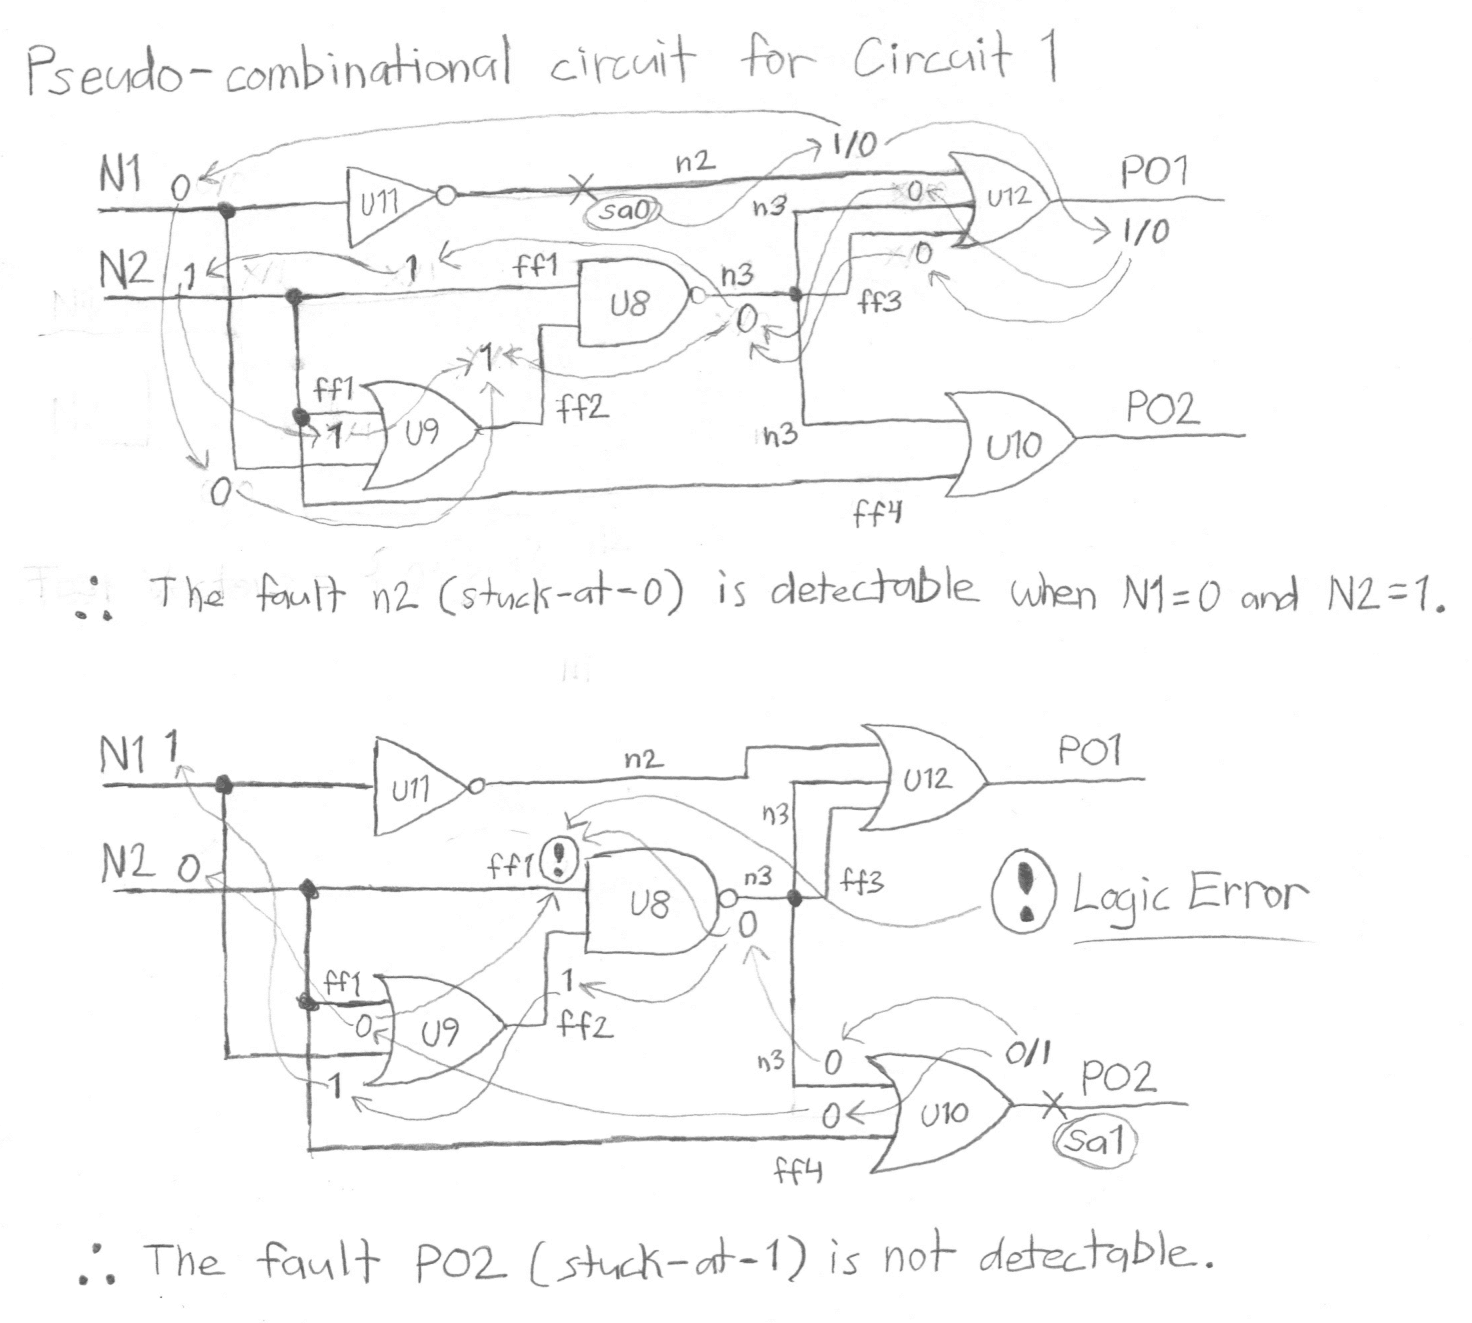 Pseudo-combinational circuit for Circuit 1
1/0
N1 0
U11
n2
sa0
n3
0
U12
PO1
1/0
N2 1
1
ff1
U8
n3
0
0
ff3
1
ff1
1
U9
ff2
n3
U10
PO2
0
ff4
∴ The fault n2 (stuck-at-0) is detectable when N1=0 and N2=1.
N1 1
U11
n2
n3
U12
PO1
N2 0
ff1 !
U8
n3
0
ff3
! Logic Error
ff1
0
U9
1
ff2
1
n3
0
0
U10
0/1
PO2
sa1
ff4
∴ The fault PO2 (stuck-at-1) is not detectable.